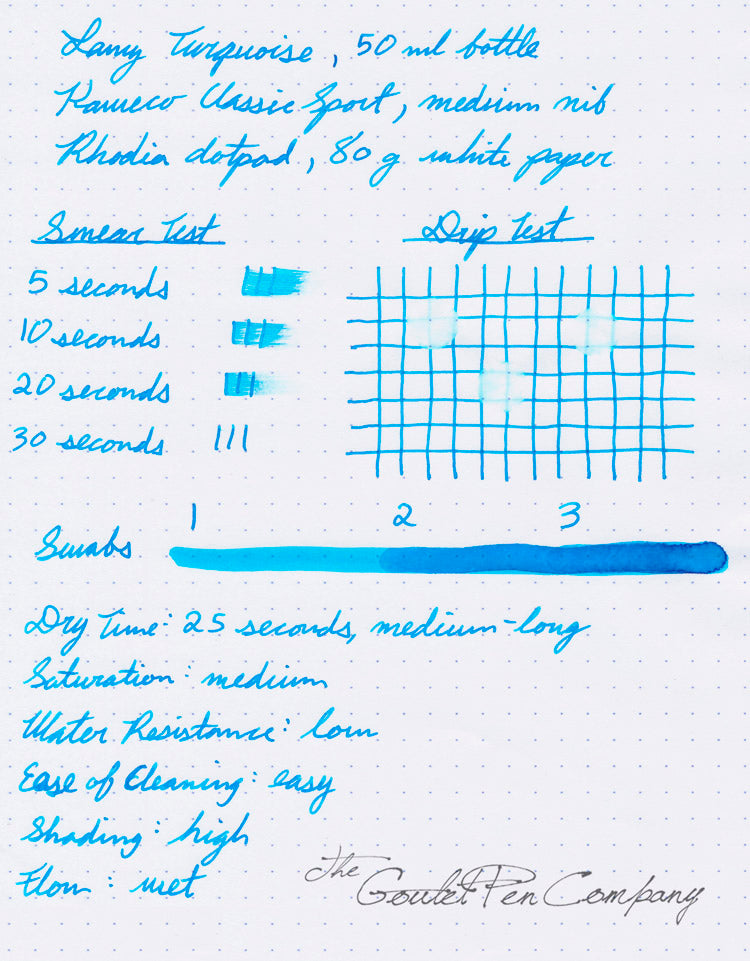 Lamy Turquoise, 50 ml bottle
Kaweco Classic Sport, medium nib
Rhodia dotpad, 80 g white paper
Smear Test
5 seconds
10 seconds
20 seconds
30 seconds
Drip Test
1 2 3
Swabs
Dry Time: 25 seconds, medium-long
Saturation: medium
Water Resistance: low
Ease of Cleaning: easy
Shading: high
Flow: wet
The Goulet Pen Company